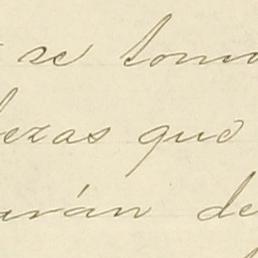 se tom
ezas que
arán de